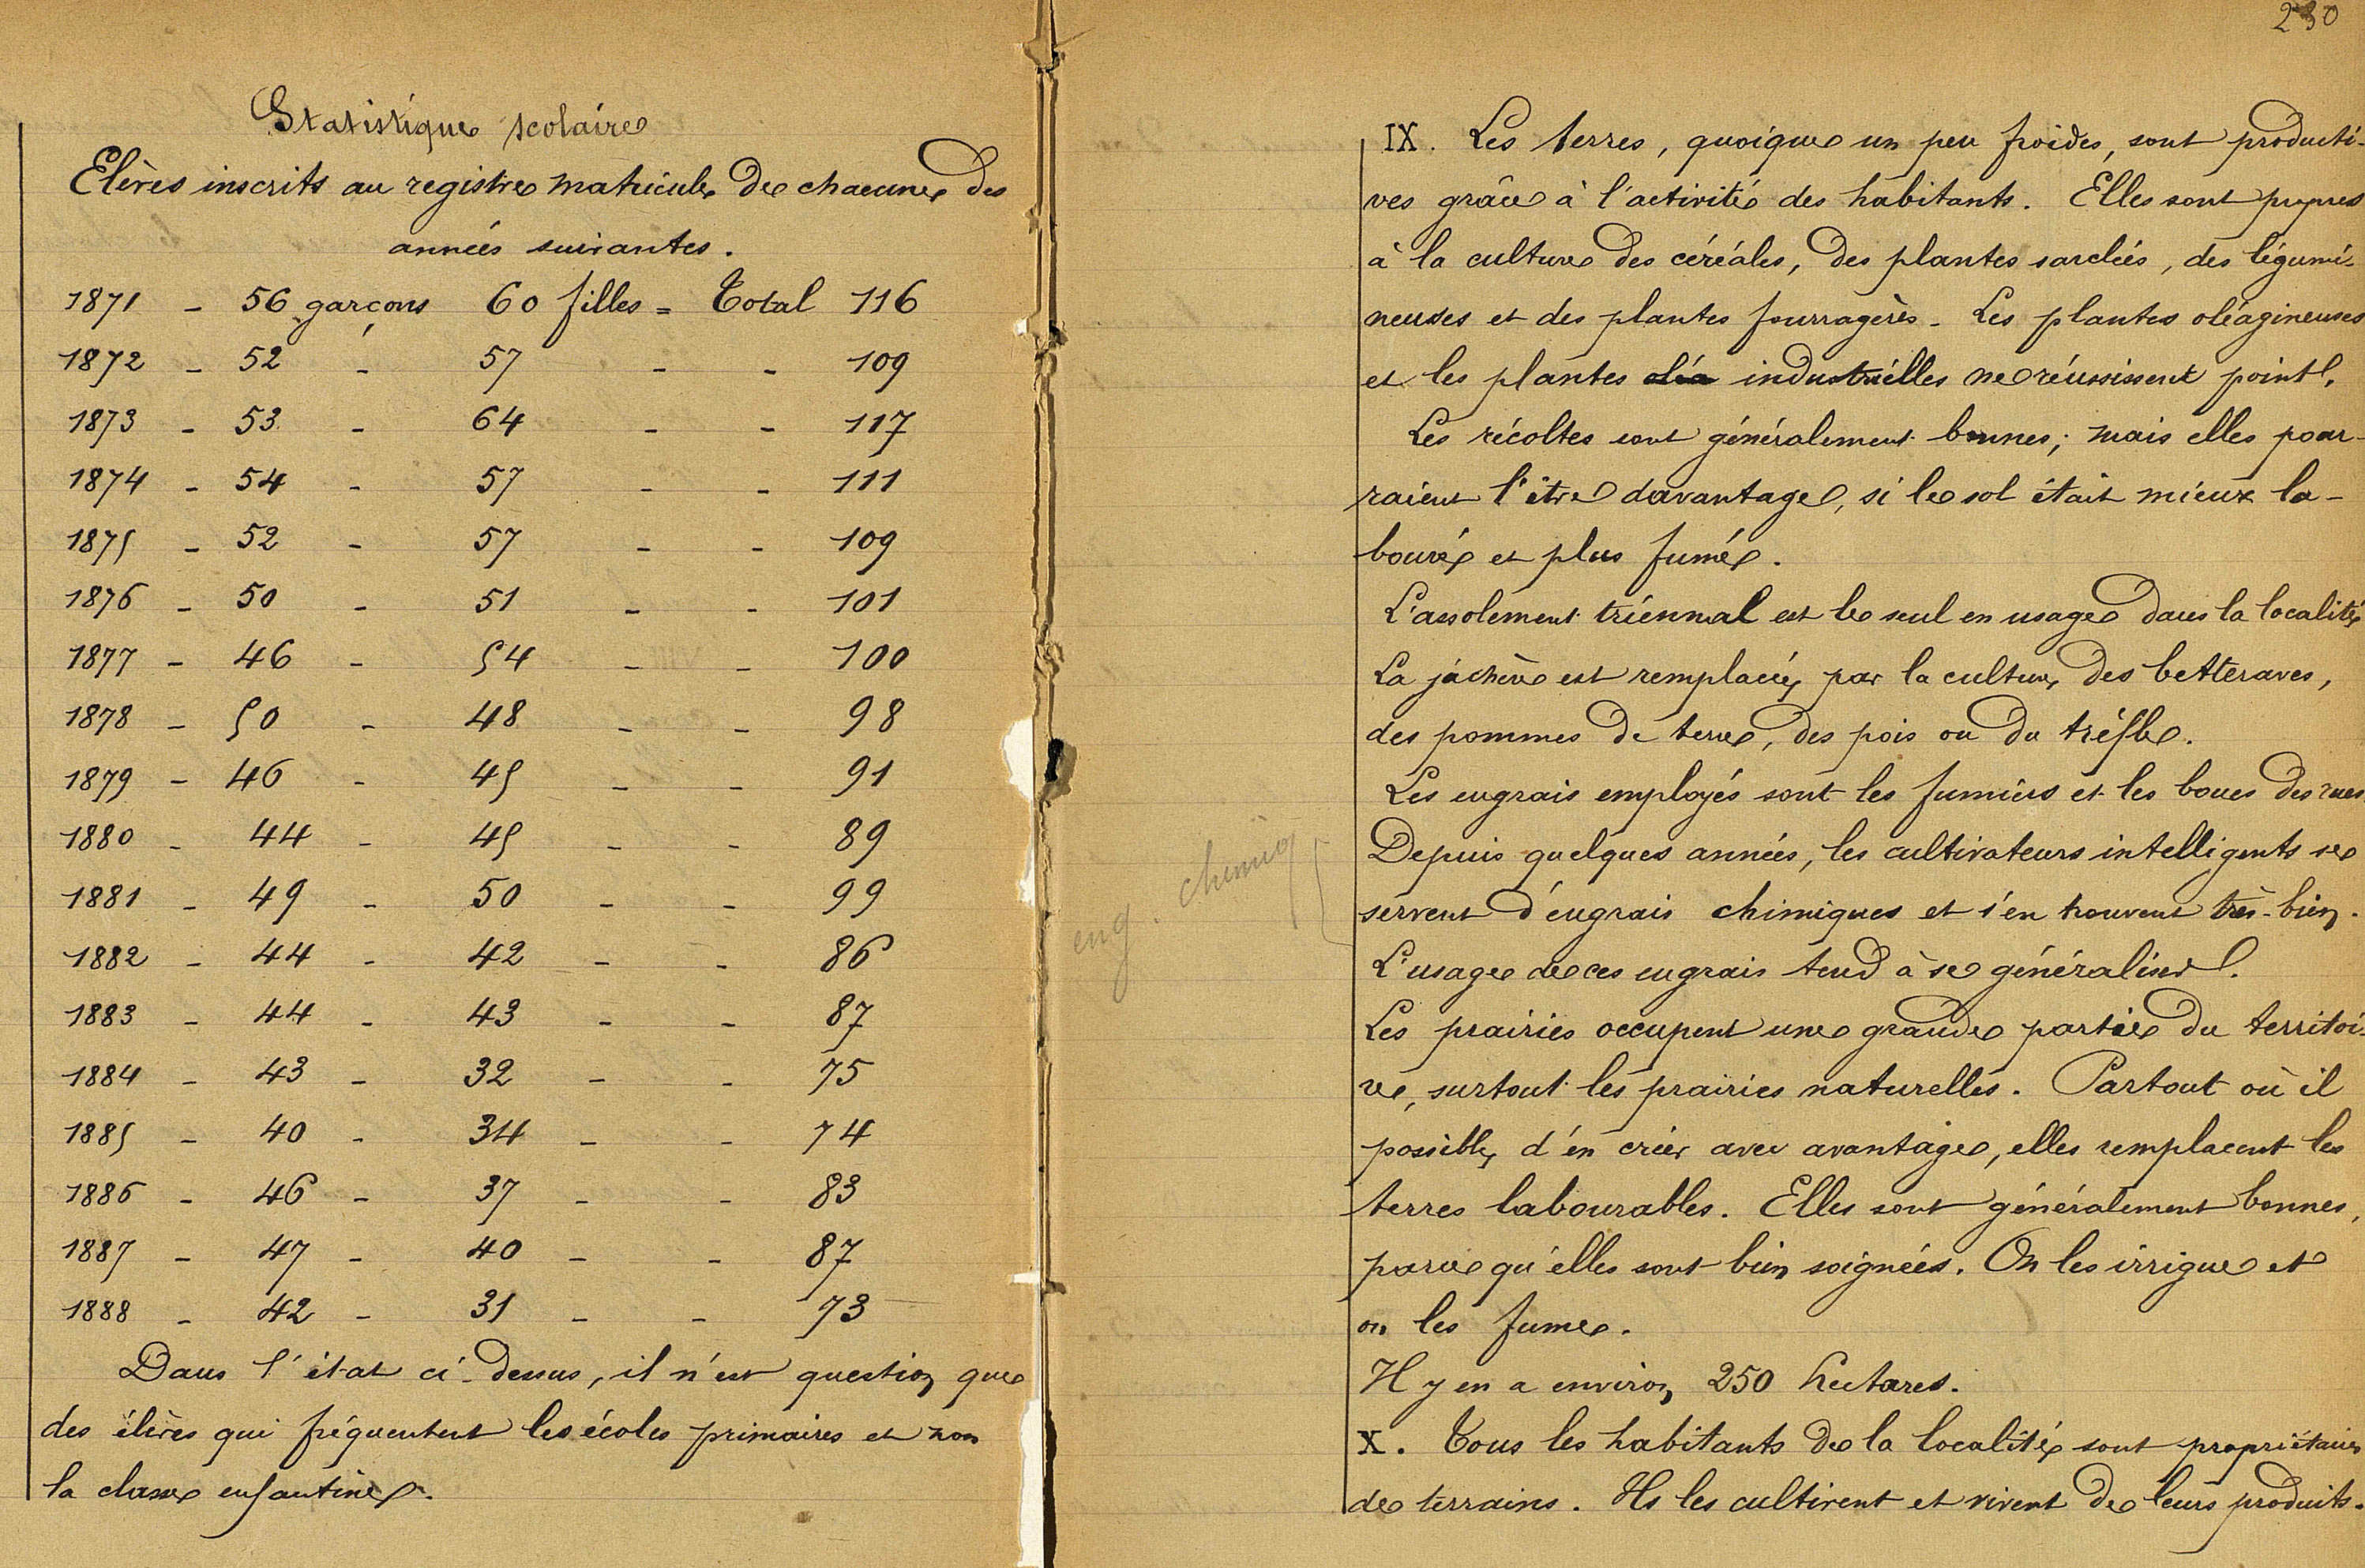 Statistique scolaire
Elèves inscrits au registre matricule de chacune des
années suivantes.
1871 - 56 garçons 60 filles = Total 116
1872 - 52 - 57 - - 109
1873 - 53 - 64 - - 117
1874 - 54 - 57 - - 111
1875 - 52 - 57 - - 109
1876 - 50 - 51 - - 101
1877 - 46 - 54 - - 100
1878 - 50 - 48 - - 98
1879 - 46 - 45 - - 91
1880 - 44 - 45 - - 89
1881 - 49 - 50 - - 99
1882 - 44 - 42 - - 86
1883 - 44 - 43 - - 87
1884 - 43 - 32 - - 75
1885 - 40 - 34 - - 74
1886 - 46 - 37 - - 83
1887 - 47 - 40 - - 87
1888 - 42 - 31 - - 73
Dans l'état ci-dessus, il n'est question que
des élèves qui fréquentent les écoles primaires et non
la classe enfantine.
230
IX. Les terres, quoique un peu froides, sont producti-
ves grâce à l'activité des habitants. Elles sont propres
à la culture des céréales, des plantes sarclées, des légumi-
neuses et des plantes fourragères. Les plantes oléagineuses
et les plantes oléa industrielles ne réussissent point.
Les récoltes sont généralement bonnes; mais elles pour-
raient l'être davantage, si le sol était mieux la-
bouré et plus fumé.
L'assolement triennal est le seul en usage dans la localité
La jachère est remplacée par la culture des betteraves,
des pommes de terre, des pois ou du trèfle.
Les engrais employés sont les fumiers et les boues des rues.
Depuis quelques années, les cultivateurs intelligents se
eng. chimiq
servent d'engrais chimiques et s'en trouvent très-bien.
L'usage de ces engrais tend à se généraliser.
Les prairies occupent une grande partie du territoi-
re, surtout les prairies naturelles. Partout où il
possible, d'en créer avec avantage, elles remplacent les
terres labourables. Elles sont généralement bonnes,
parce qu'elles sont bien soignées. On les irrigue et
on les fume.
Il y en a environ 250 hectares.
X. Tous les habitants de la localité sont propriétaires
de terrains. Ils les cultivent et vivent de leurs produits.